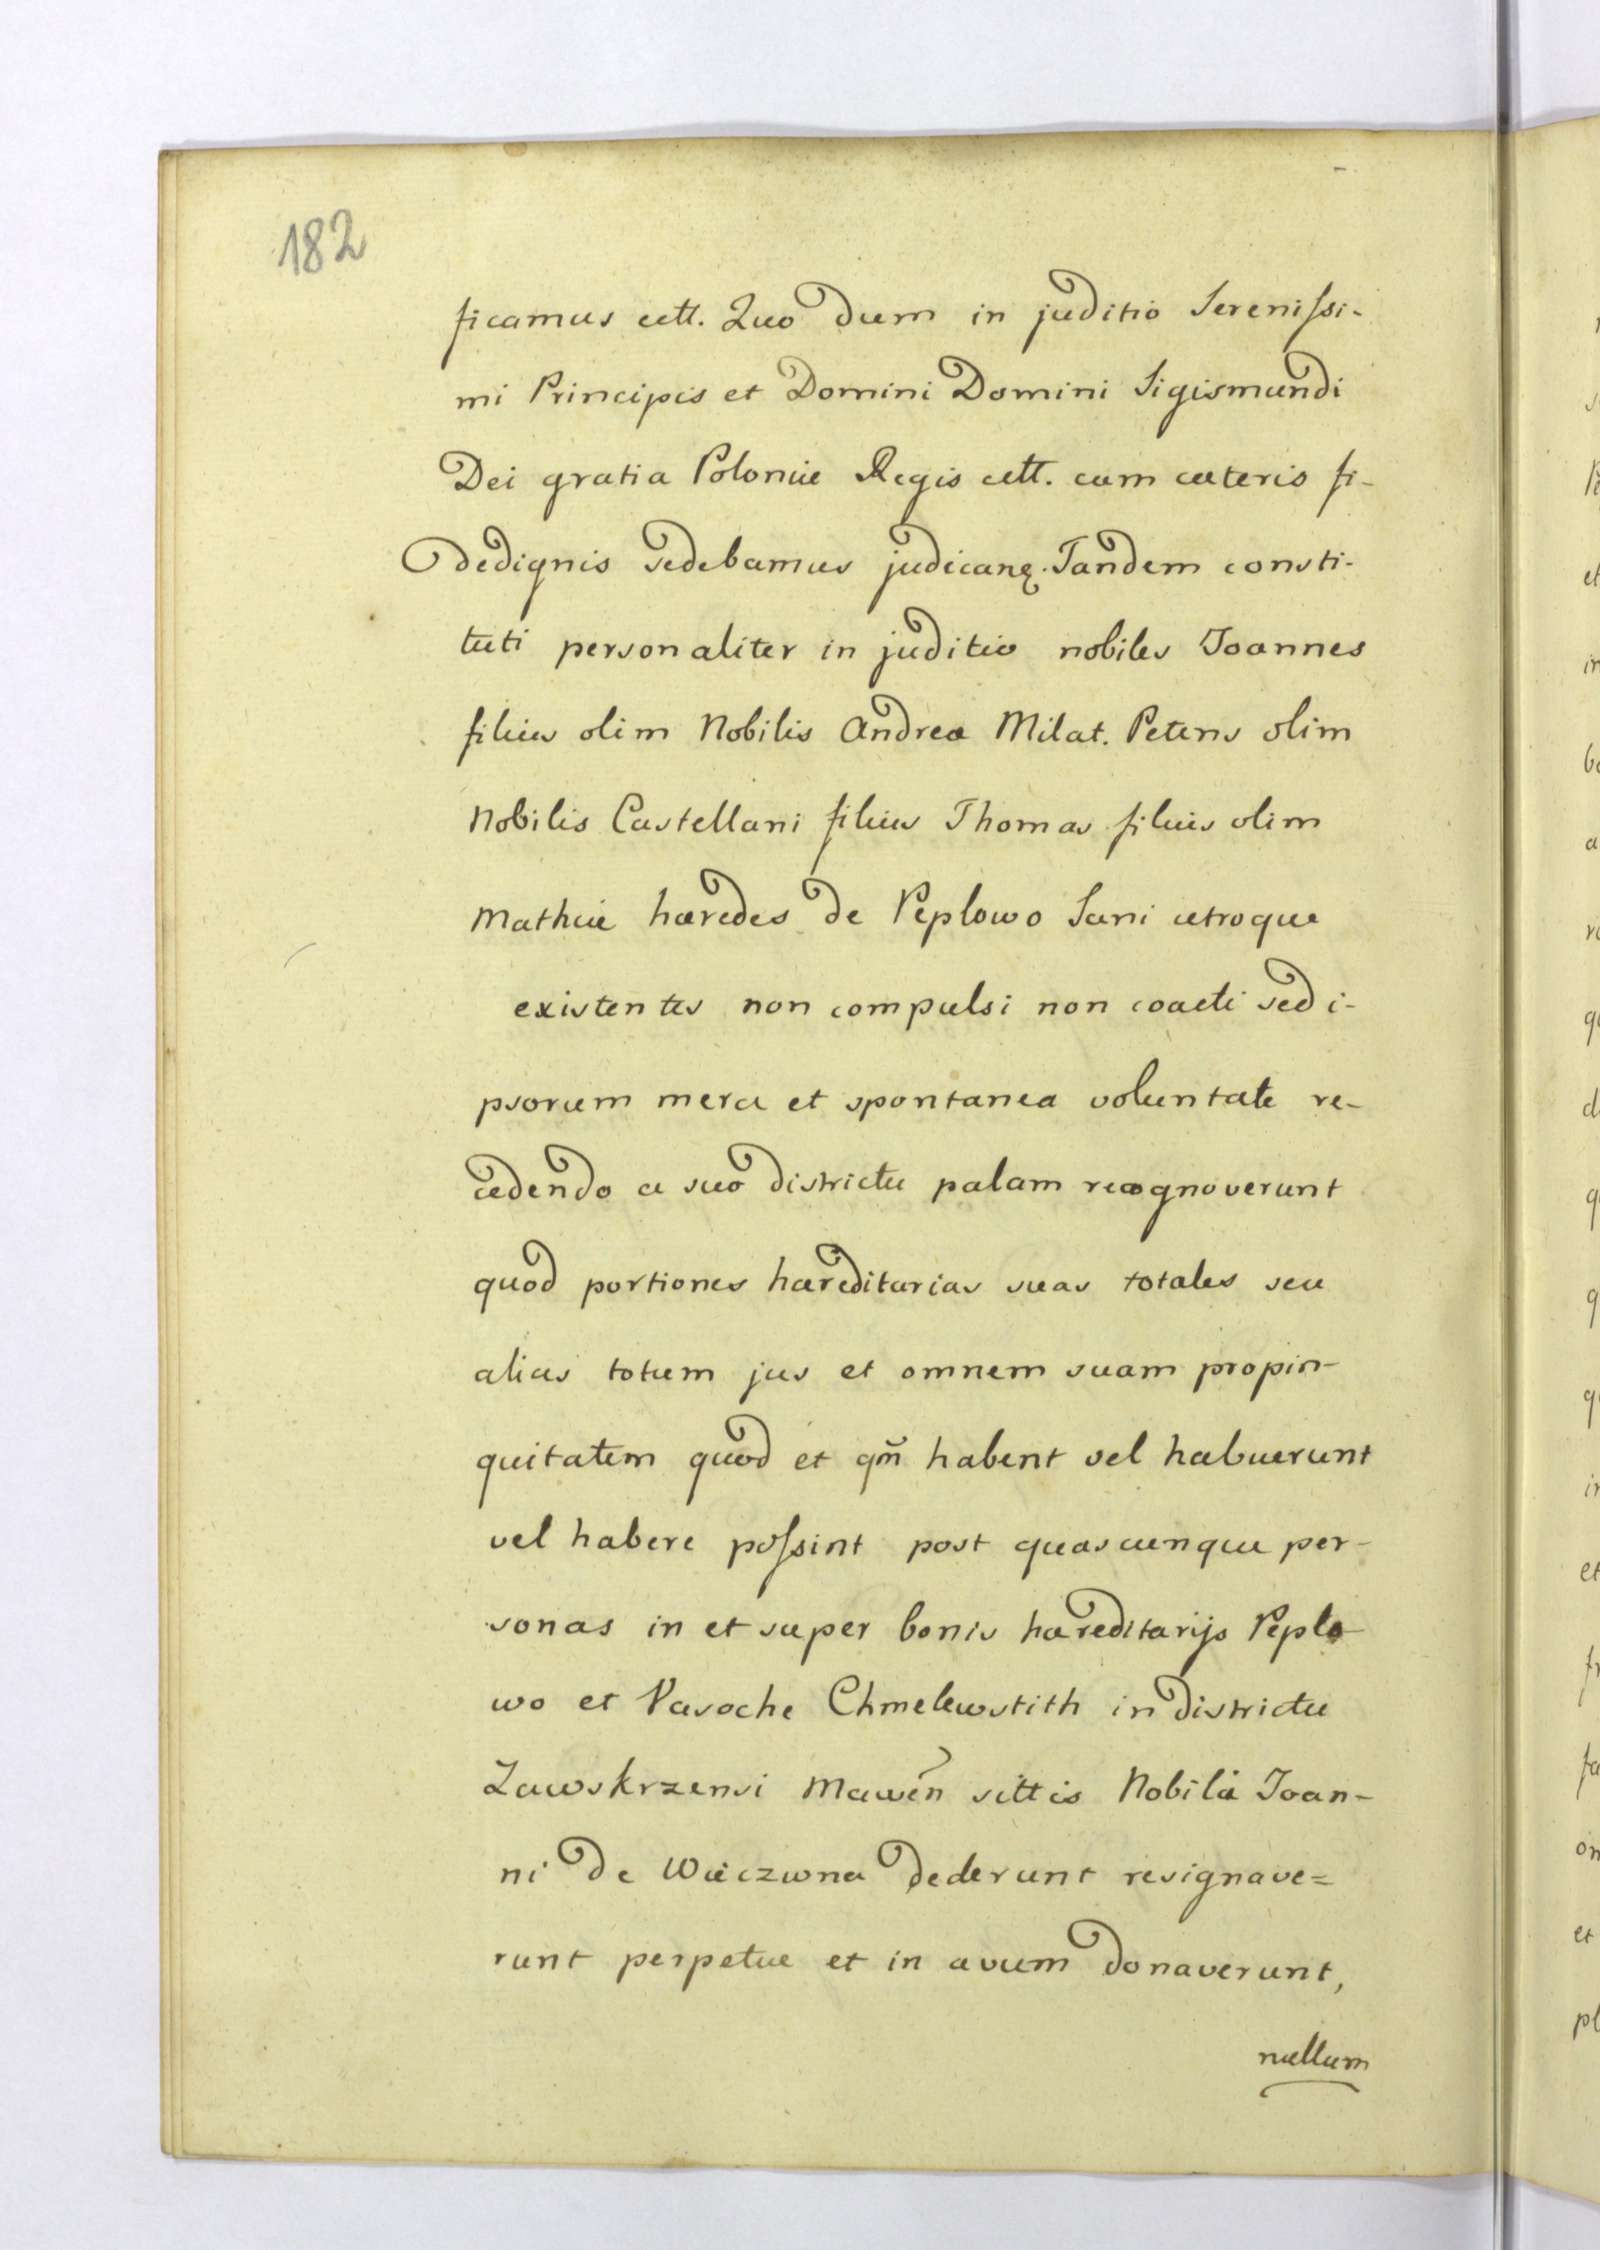 182
ficamus cett. Quo dum in juditio Serenissi-
mi Principis et Domini Domini Sigismundi
Dei gratia Poloniæ Regis cett. cum cæteris fi-
dedignis sedebamus judican. Tandem consti-
tuti personaliter in juditio nobiles Joannes
filius olim Nobilis Andreæ Milat. Petrus olim
Nobilis Castellani filius Thomas filius olim
Mathiæ hæredes de Peplowo Sani utroque
existentes non compulsi non coacti sed i-
psorum mera et spontanea voluntate re-
cedendo a suo districtu palam recognoverunt
quod portiones hæreditarias suas totales seu
alias totum jus et omnem suam propin-
quitatem quod et qm̃ habent vel habuerunt
vel habere possint post quascunque per-
sonas in et super bonis hæreditarijs Peplo-
wo et Pasoche Chmelewstith in districtu
Zawskrzensi Mawen̄ sittis Nobili Joan-
ni de Wieczwna dederunt resignave=
runt perpetue et in ævum donaverunt,
nullum